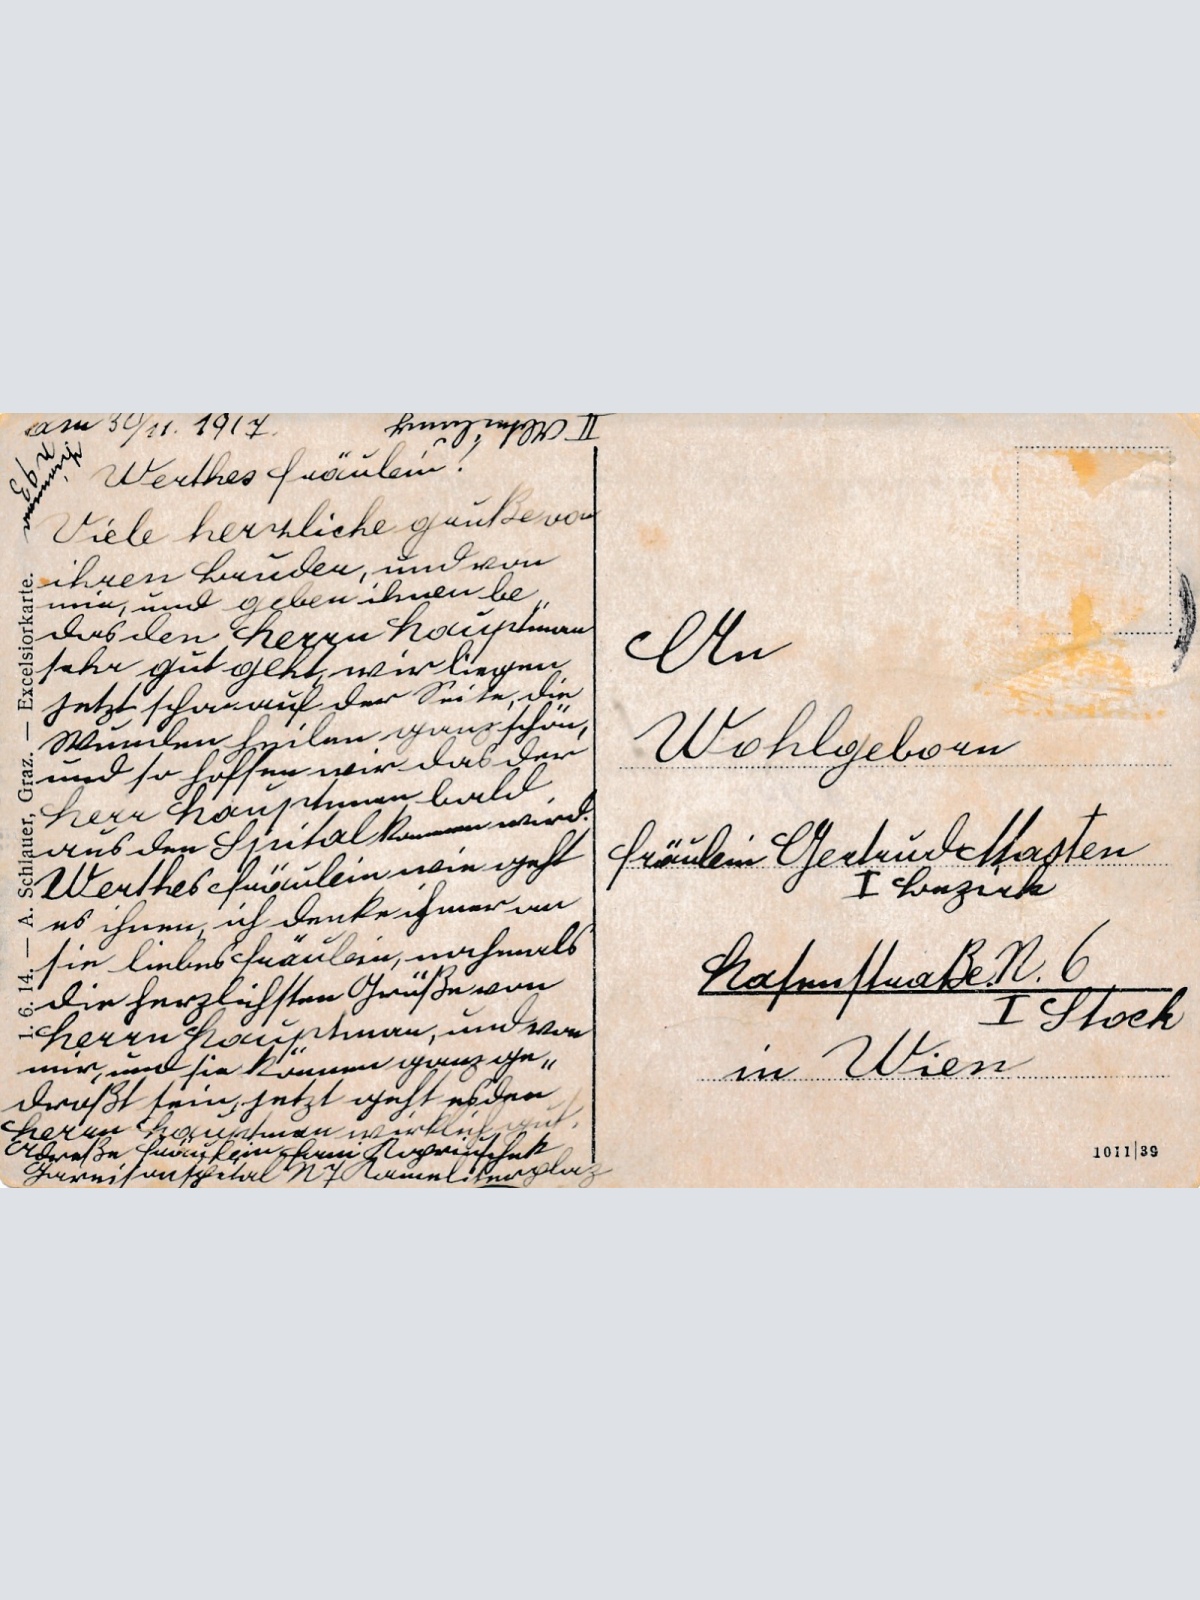 am 30/11. 1917.
II Abteilung
Zimmer
N 93
Werthes Fräulein!
Viele herzliche grüße von
ihren Bruder, und von
mir, und geben ihnen be„
das den Herrn Hauptman
sehr gut geht, wir liegen
jetzt schon auf der Seite, die
Wunden heilen ganz schön,
und so hoffen wir das der
Herr Hauptman bald
aus den Spital kommen wird.
Werthes Fräulein wie geht
es ihnen, ich denke immer an
sie liebes Fräulein, nochmals
die herzlichsten Grüße von
Herrn Hauptman, und von
mir, und sie können ganz ge„
droßt sein, jetzt geht es den
Herrn Hauptman wirklich gut.
Adreße Fräulein
Garnisonspital N 7 Kameliterplaz
1. 6. 14. — A. Schlauer, Graz. — Excelsiorkarte.
An
Wohlgeborn
Fräulein Gertrud Masten
I Bezirk
Hasenstraße N. 6
I Stock
in Wien
1011|39